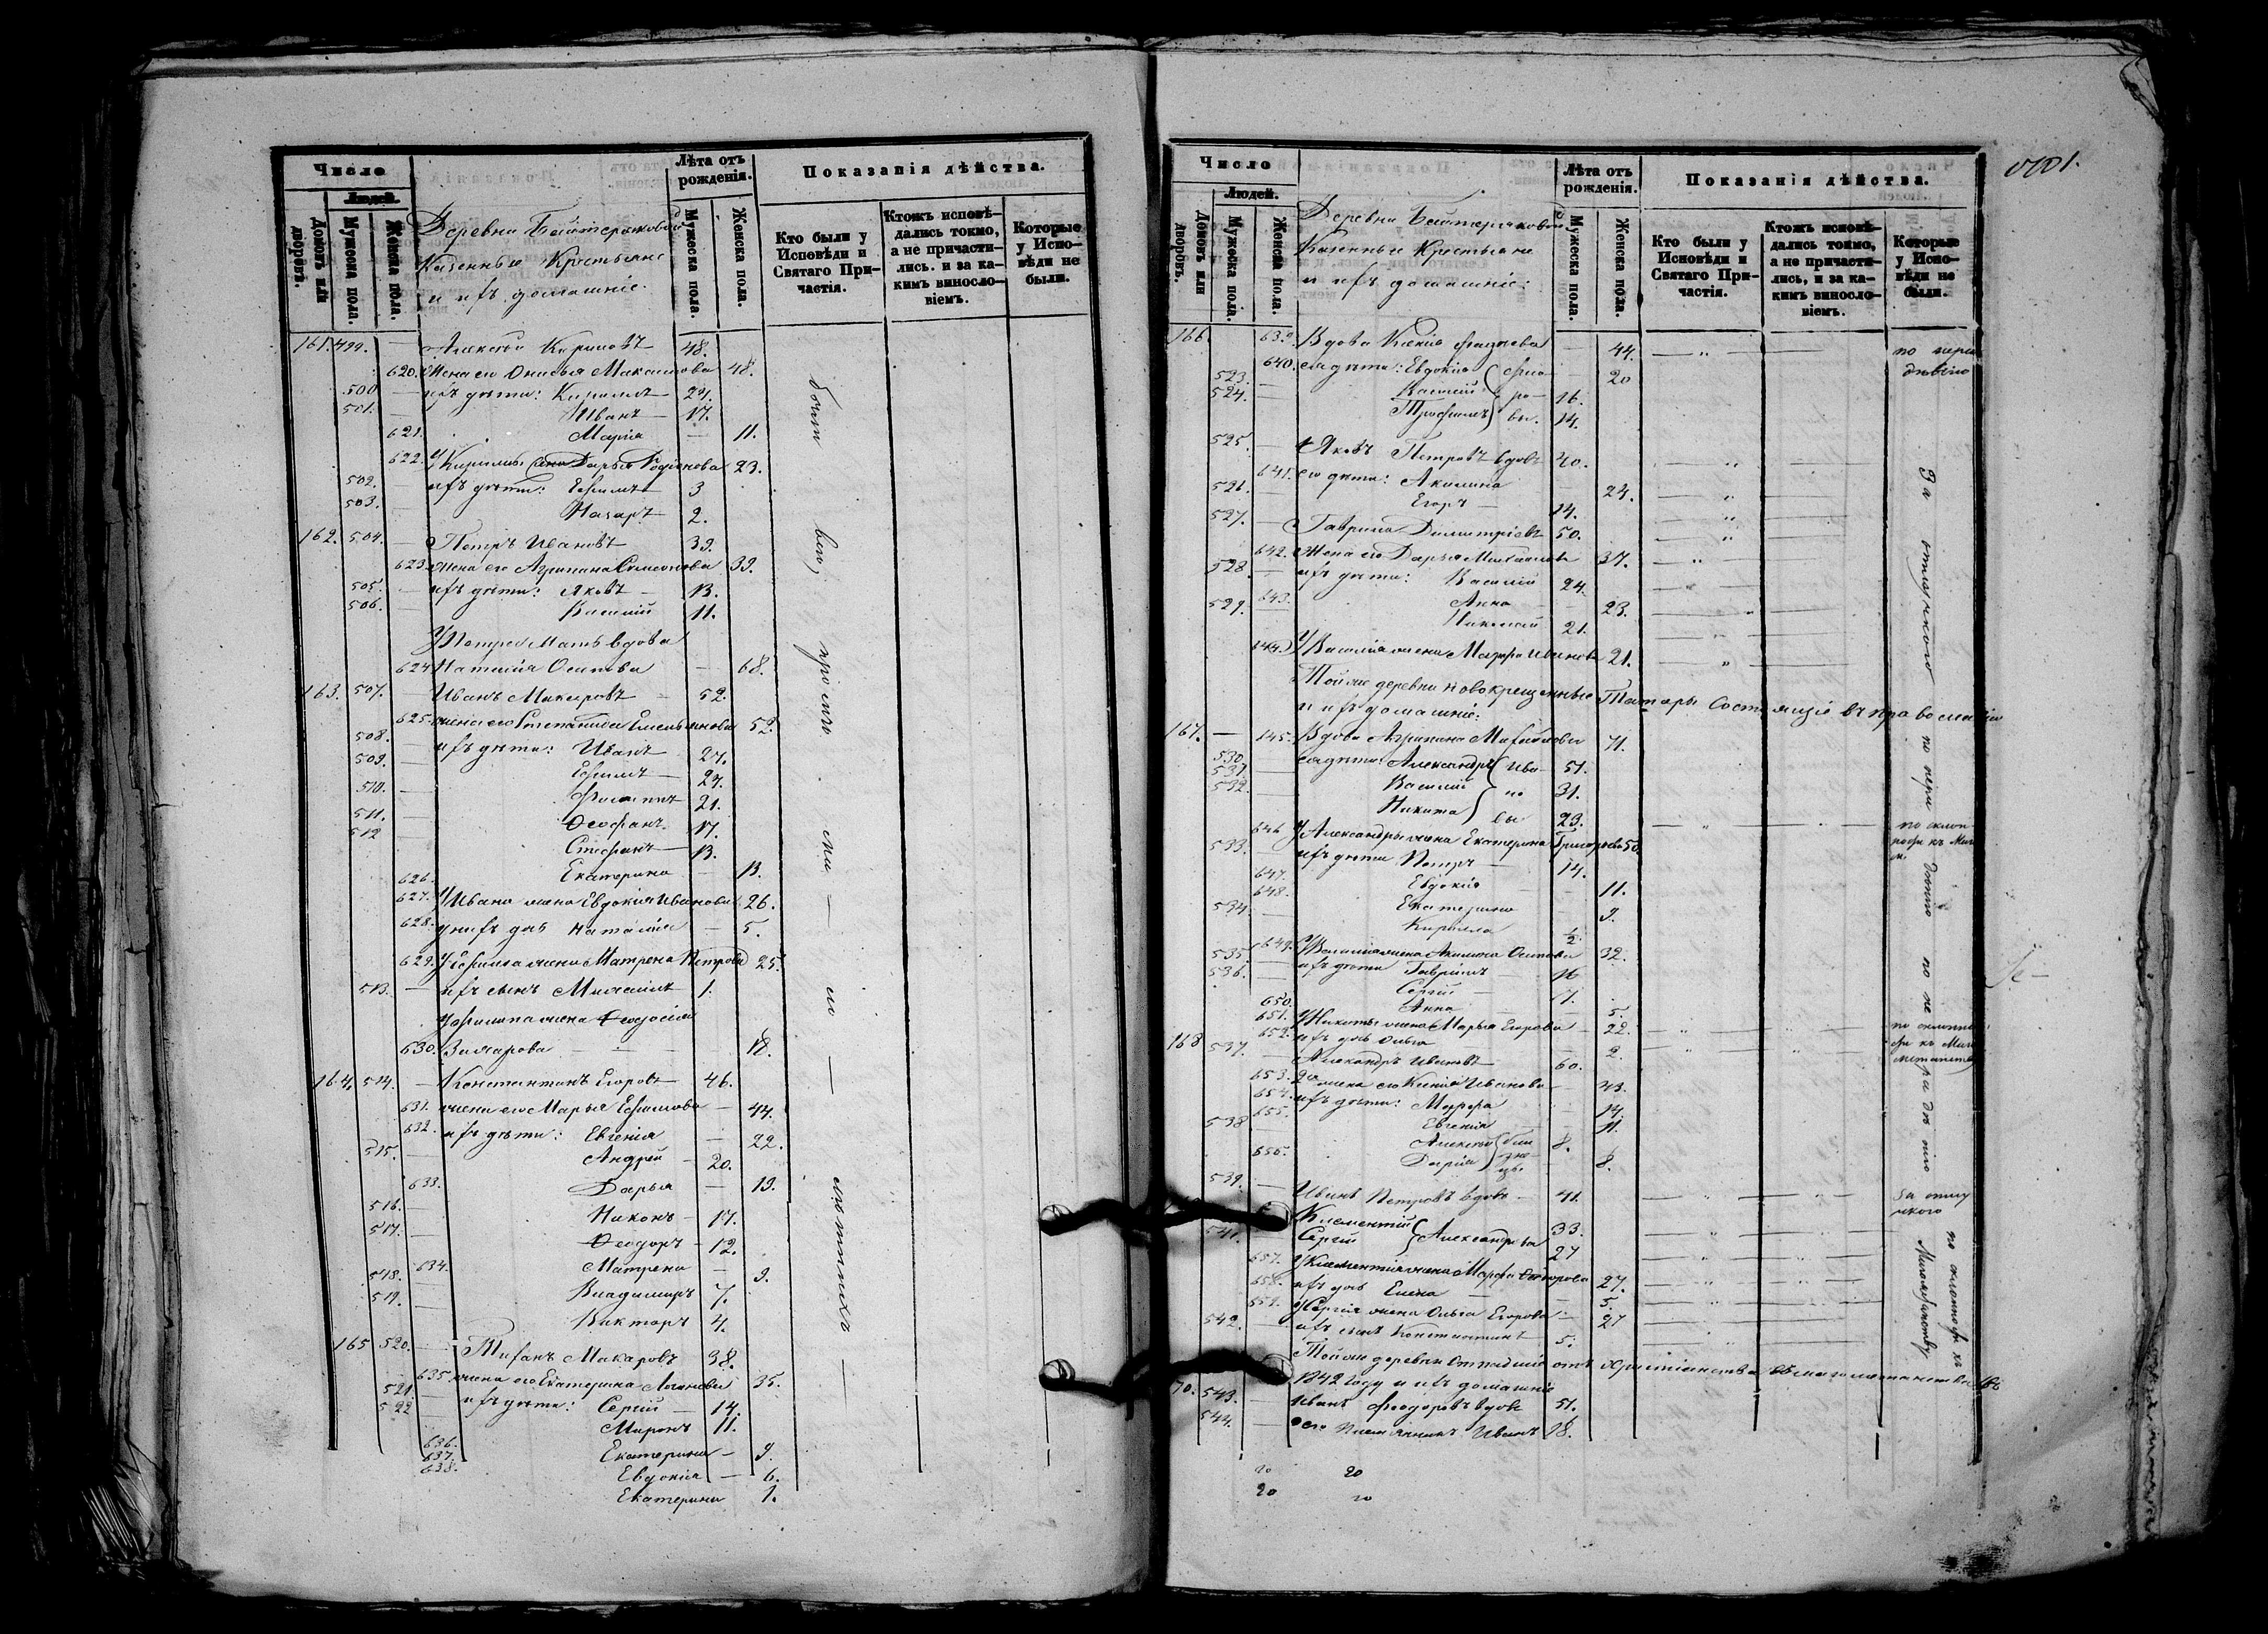 Число
Людей.
Домовъ или дворовъ.
Мужеска пола.
Женска пола.
Деревни Байтеряковой
Казенные Крестьяне
и ихъ домашніе.
Лѣта отъ рожденія.
Мужеска пола.
Женска пола.
Показанія дѣйства.
Кто были у Исповѣди и Святаго Причастія.
Ктожъ исповѣдались токмо, а не причастились. и за какимъ винословіемъ.
Которые у Исповѣди не были.
161. 499. — Алексѣй Кириловъ 48.
620. Жена его Онисья Максимова 48.
500 — ихъ дѣти: Кириллъ 24.
501. — Иванъ — 17.
621. Марія — 11.
622. У Кирилы жена Дарья Родіонова 23.
502. — ихъ дѣти: Ефимъ 3
503. — Назаръ 2.
162. 504. — Петръ Ивановъ 39.
623. жена его Агрипина Симеонова 39.
505. — ихъ дѣти: Яковъ — 13.
506. — Василій 11.
У Петра Мать вдова
624 Наталія Осипова — 68.
163. 507. — Иванъ Макаровъ — 52.
625. жена его Степанида Емельянова 52.
508. — ихъ дѣти: Иванъ — 27.
509. — Ефимъ — 24.
510. — Филиппъ 21.
511. — Ѳеофанъ 17.
512 Стефанъ — 13.
626. Екатерина — 13.
627. У Ивана жена Евдокія Иванова 26.
628. у нихъ дочь Наталія — 5.
629. У Ефима жена Матрена Петрова 25.
513. — ихъ сынъ Михаилъ 1.
У Филипа жена Ѳеодосія
630. Захарова — 18.
164. 514. — Константинъ Егоровъ 46.
631. жена его Марья Ефимова — 44.
632. ихъ дѣти: Евгенія — 22.
515. — Андрей — 20.
633. Дарья — 19.
516. — Никонъ — 17.
517. — Ѳеодоръ — 12.
634. Матрена — 9.
518. — Владимиръ 7.
519. — Викторъ 4.
165 520. — Тиханъ Макаровъ 38.
635. жена его Екатерина Логинова 35.
521. — ихъ дѣти: Сергій — 14.
522 — Миронъ 11.
636. Екатерина — 9.
637. Евдокія — 6.
638. Екатерина 1.
Число
Людей.
Домовъ или дворовъ.
Мужеска пола.
Женска пола.
Деревни Байтеряковой
Казенные Крестьяне
и ихъ домашніе:
Лѣта отъ рожденія.
Мужеска пола.
Женска пола.
Показанія дѣйства.
Кто были у Исповѣди и Святаго Причастія.
Ктожъ исповѣдались токмо, а не причастились, и за какимъ винословіемъ.
Которые у Исповѣди не были.
166. 639 Вдова Ксенія — 44. —〃—
640. ея дѣти: Евдокія — 20
523. — Василій 16.
524. — Трофимъ 14.
525. — Яковъ Петровъ вдовъ 40. —〃—
641. его дѣти: Акилина 24. —〃—
526. — Егоръ — 14. —〃—
527. — Гаврила Димитріевъ 50. —〃—
642. Жена его Дарья Михаилова 37. —〃—
528. — ихъ дѣти: Василій 24. —〃—
643. Анна — 23. —〃—
529. Николай 21. —〃—
644. У Василія жена Марфа Иванова 21. —〃—
За отлучкою
Той же деревни новокрещенные Татары состоящіе въ православіи
и ихъ домашніе:
167. — 145. Вдова Агрипина Михайлова 71.
530. ея дѣти: Александръ Ива- 51.
531. — Василій но 31.
532. — Никита вы 23.
646 У Александры жена Екатерина Григорьева 50.
533. — ихъ дѣти Петръ — 14.
647. Евдокія — 11.
648. Екатерина 9.
534. — Кирилла ½.
649. У Василія жена Акилина Осипова 32.
535. — ихъ дѣти Гавріилъ — 16
536. — Сергій — 7.
650. Анна — 5.
651. У Никиты жена Марья Егорова — 22.
652. ихъ дочь Ольга 2.
168 537. — Александръ Ивановъ — 60.
653. 2я жена его Ксенія Иванова — 43.
654. ихъ дѣти: Марфа — 14.
655. Евгенія — 11.
538 — Алексѣй 8.
656. Дарія 8.
близнецы
539. — Иванъ Петровъ вдовъ — 41. За отлучкою
Климентій 33.
541. Сергій Александровы 27
657. У Климентія жена Марфа 27.
658. ихъ дочь Елена — 5.
659. У Сергія жена Ольга Егорова — 27
542. — ихъ сынъ Константинъ 5.
по склонности къ Магометанству
Той же деревни отпадшіе отъ христіанства въ магометанство въ
1842 году и ихъ домашніе
70. 543. — Иванъ Ѳеодоровъ вдовъ 51.
544. — его племянникъ Иванъ 18.
20 20
20 20